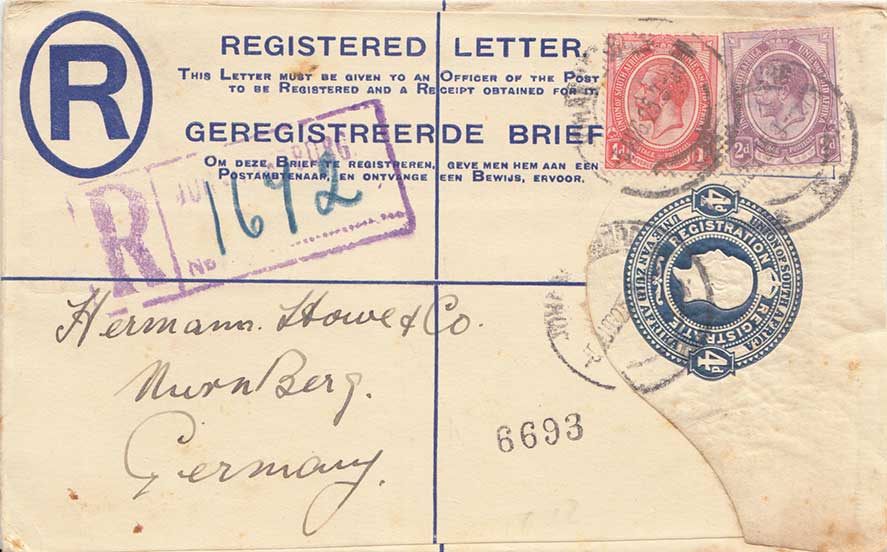 R
REGISTERED LETTER.
THIS LETTER MUST BE GIVEN TO AN OFFICER OF THE POST
TO BE REGISTERED AND A RECEIPT OBTAINED FOR
GEREGISTREERDE BRIEF
OM DEZE BRIEF TE REGISTREREN, GEVE MEN HEM AAN EEN
POSTAMBTENAAR, EN ONTVANGE EEN BEWIJS, ERVOOR.
UNION OF SOUTH AFRICA
1d 1d
UNIE VAN ZUID AFRIKA
2d 2d
R
No 1692
4d
UNION OF SOUTH AFRICA
UNIE VAN ZUID AFRIKA
REGISTRATION
REGISTRATIE
4d
Hermann. Howe & Co.
NurnBerg.
Germany.
6693